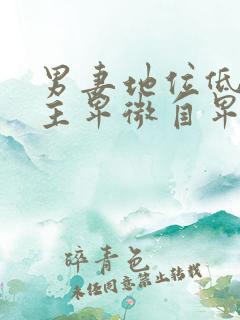 男妻地位低
主卑微自卑
碎青色
未经同意禁止转载